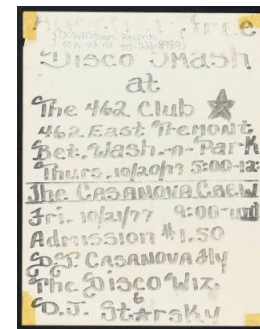 Free
Downstairs Records
Disco Smash
at
The 462 Club
462 East Tremont
Bet. Wash-n-Park
Thurs. 10/20/77 5:00-12:
The Casanova Crew
Fri. 10/21/77 9:00-until
Admission $1.50
D.J. Casanova Fly
The Disco Wiz
&
D.J. Starsky